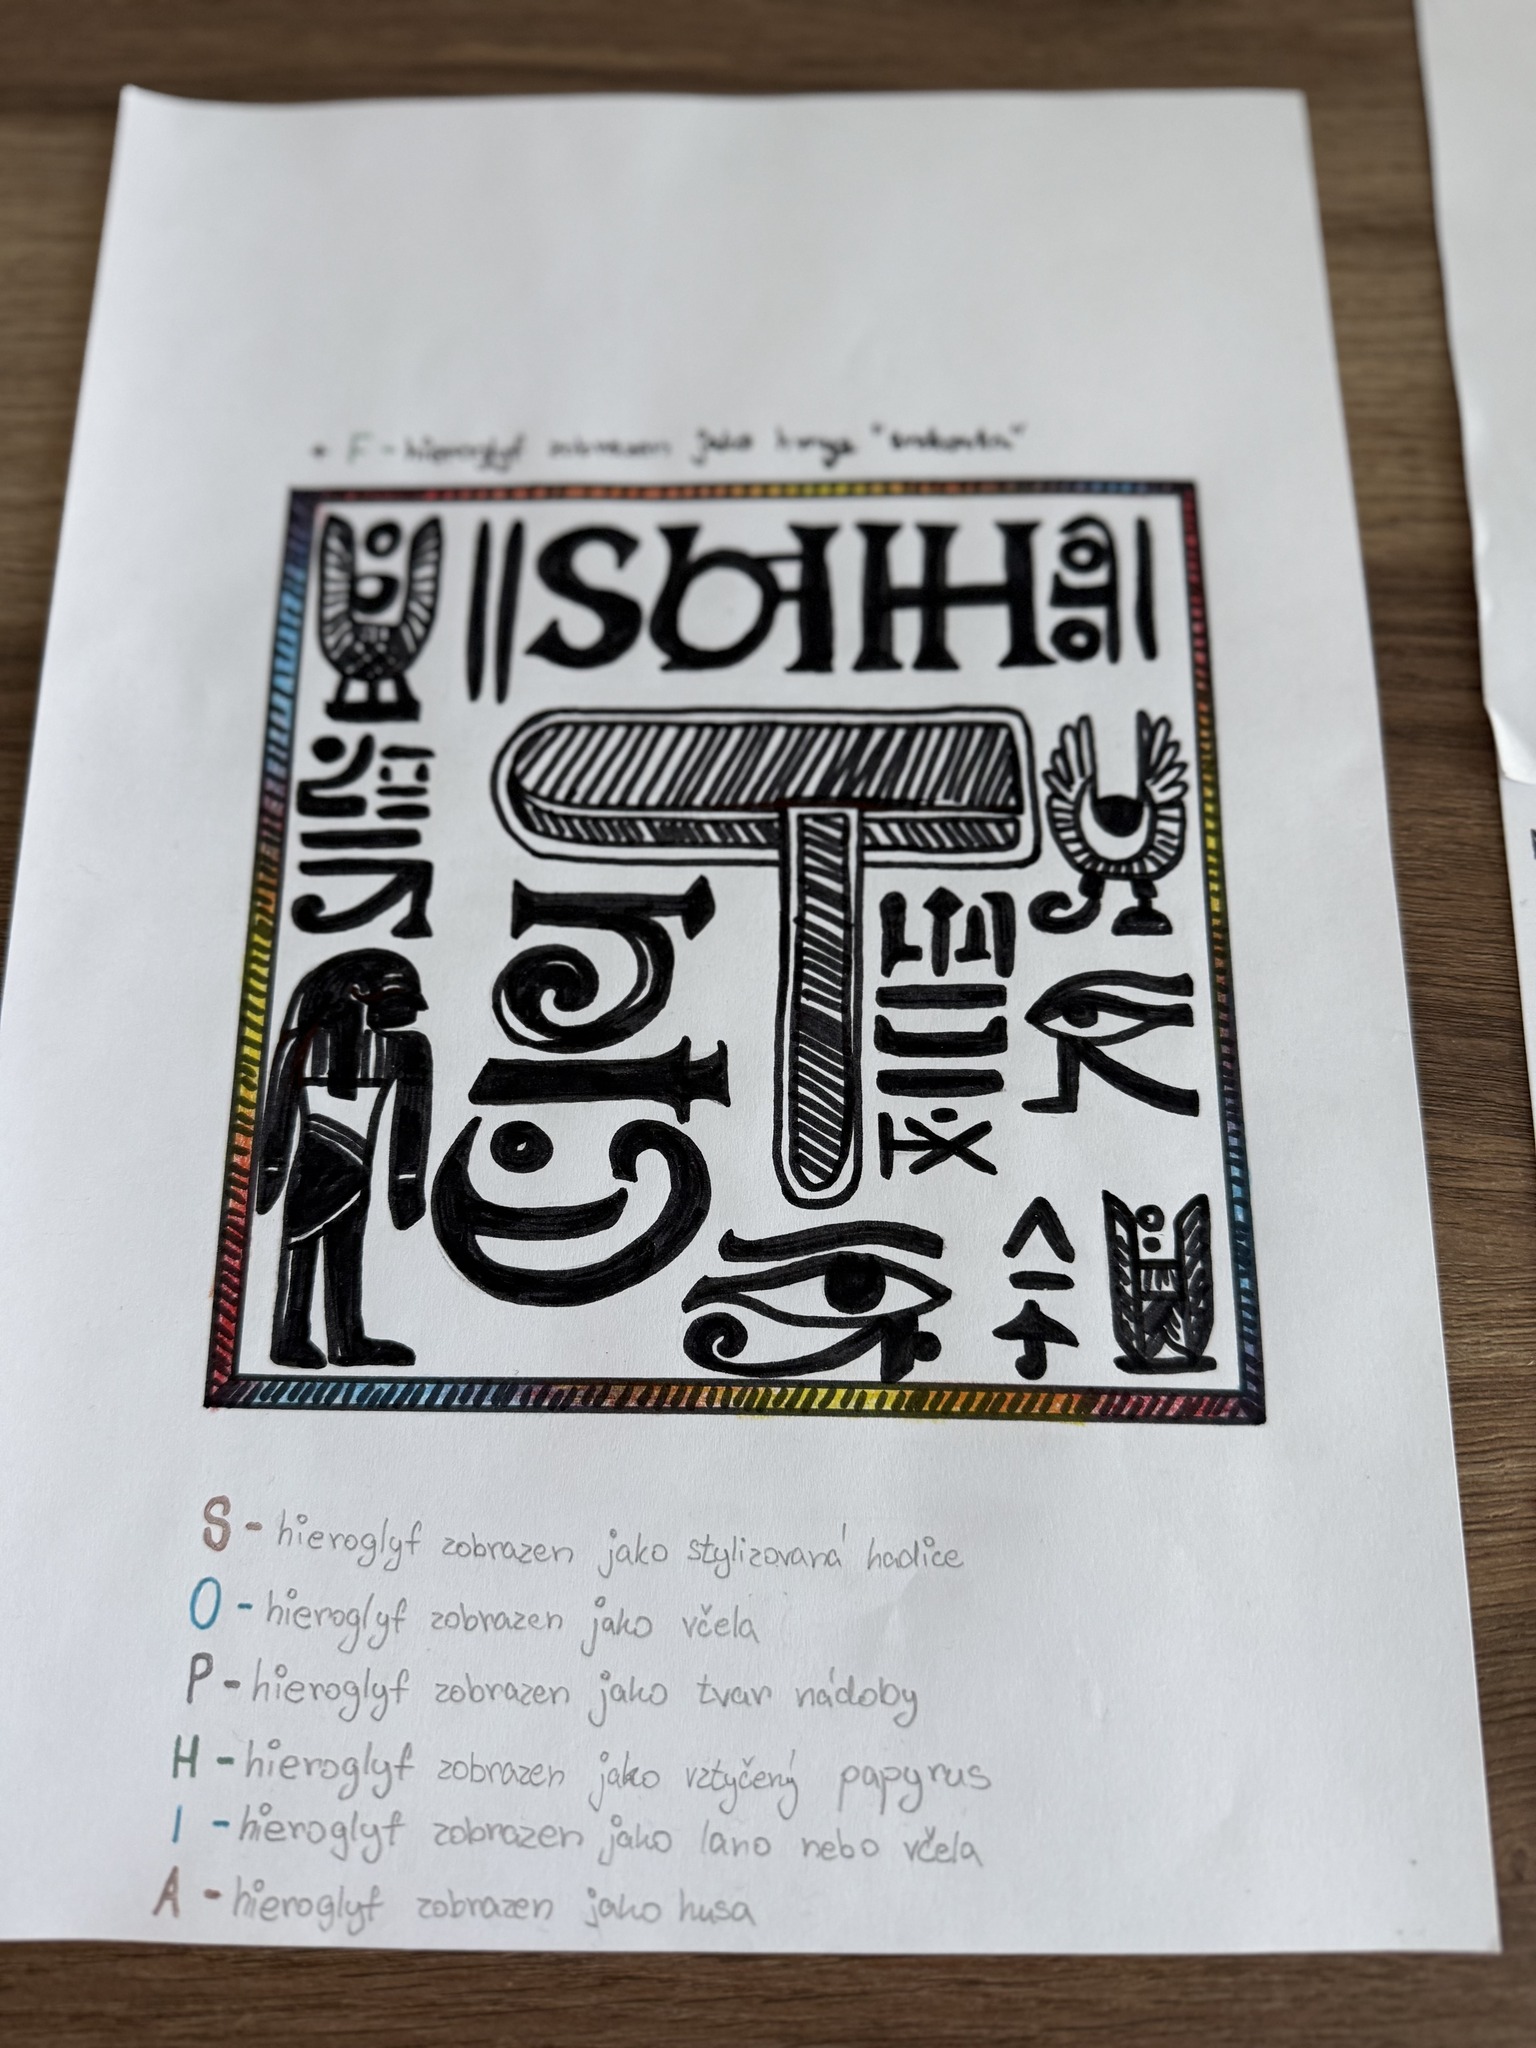 + F - hieroglyf zobrazen jako
S - hieroglyf zobrazen jako stylizovaná hadice
O - hieroglyf zobrazen jako včela
P - hieroglyf zobrazen jako tvar nádoby
H - hieroglyf zobrazen jako vztyčený papyrus
I - hieroglyf zobrazen jako lano nebo včela
A - hieroglyf zobrazen jako husa